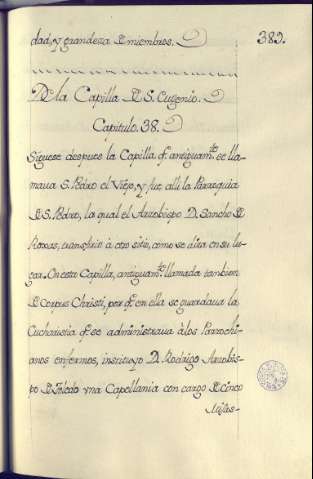 dad, y grandeza de miembros.
389.
De la Capilla de S. Eugenio.
Capitulo. 38.
Siguese despues la Capilla q̃ antiguamte. se lla-
maua S. Pedro el Viejo, y fue alli la Parroquia
de S. Pedro, la qual el Arzobispo D. Sancho de
Roxas, transfirió à otro sitio, como se dira en su lu-
gar. En esta Capilla, antiguamte. llamada tambien
de Corpus Christi, por q̃ en ella se guardaua la
Eucharistia q̃ se administraua à los Parrochi-
anos enfermos, instituyo D. Rodrigo Arzobis-
po de Toledo vna Capellania con cargo de cinco
Missas-